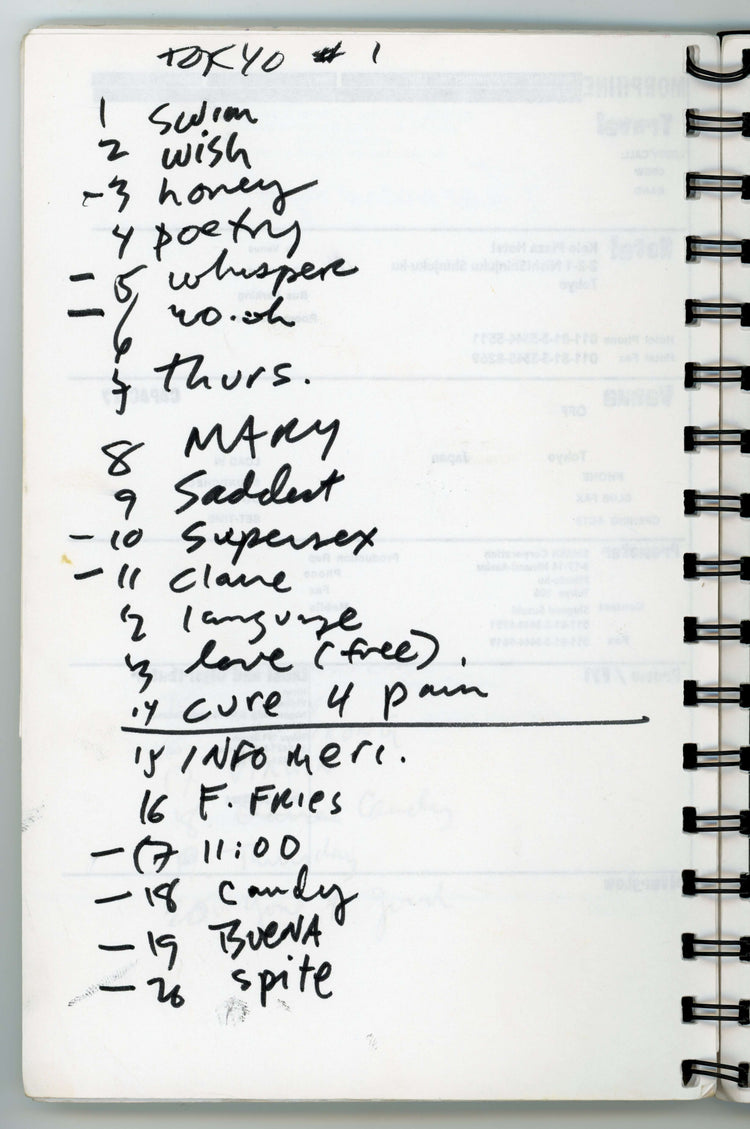 TOKYO # 1
1 swim
2 wish
-3 honey
4 poetry
- 5 whisper
- 6
7 thurs.
8 MARY
9 Saddest
- 10 Supersex
- 11 Claire
12 language
13 love (free).
14 cure 4 pain
15 INFO Merc.
16 F. FRIES
- 17 11:00
- 18 Candy
- 19 BUENA
- 20 spite